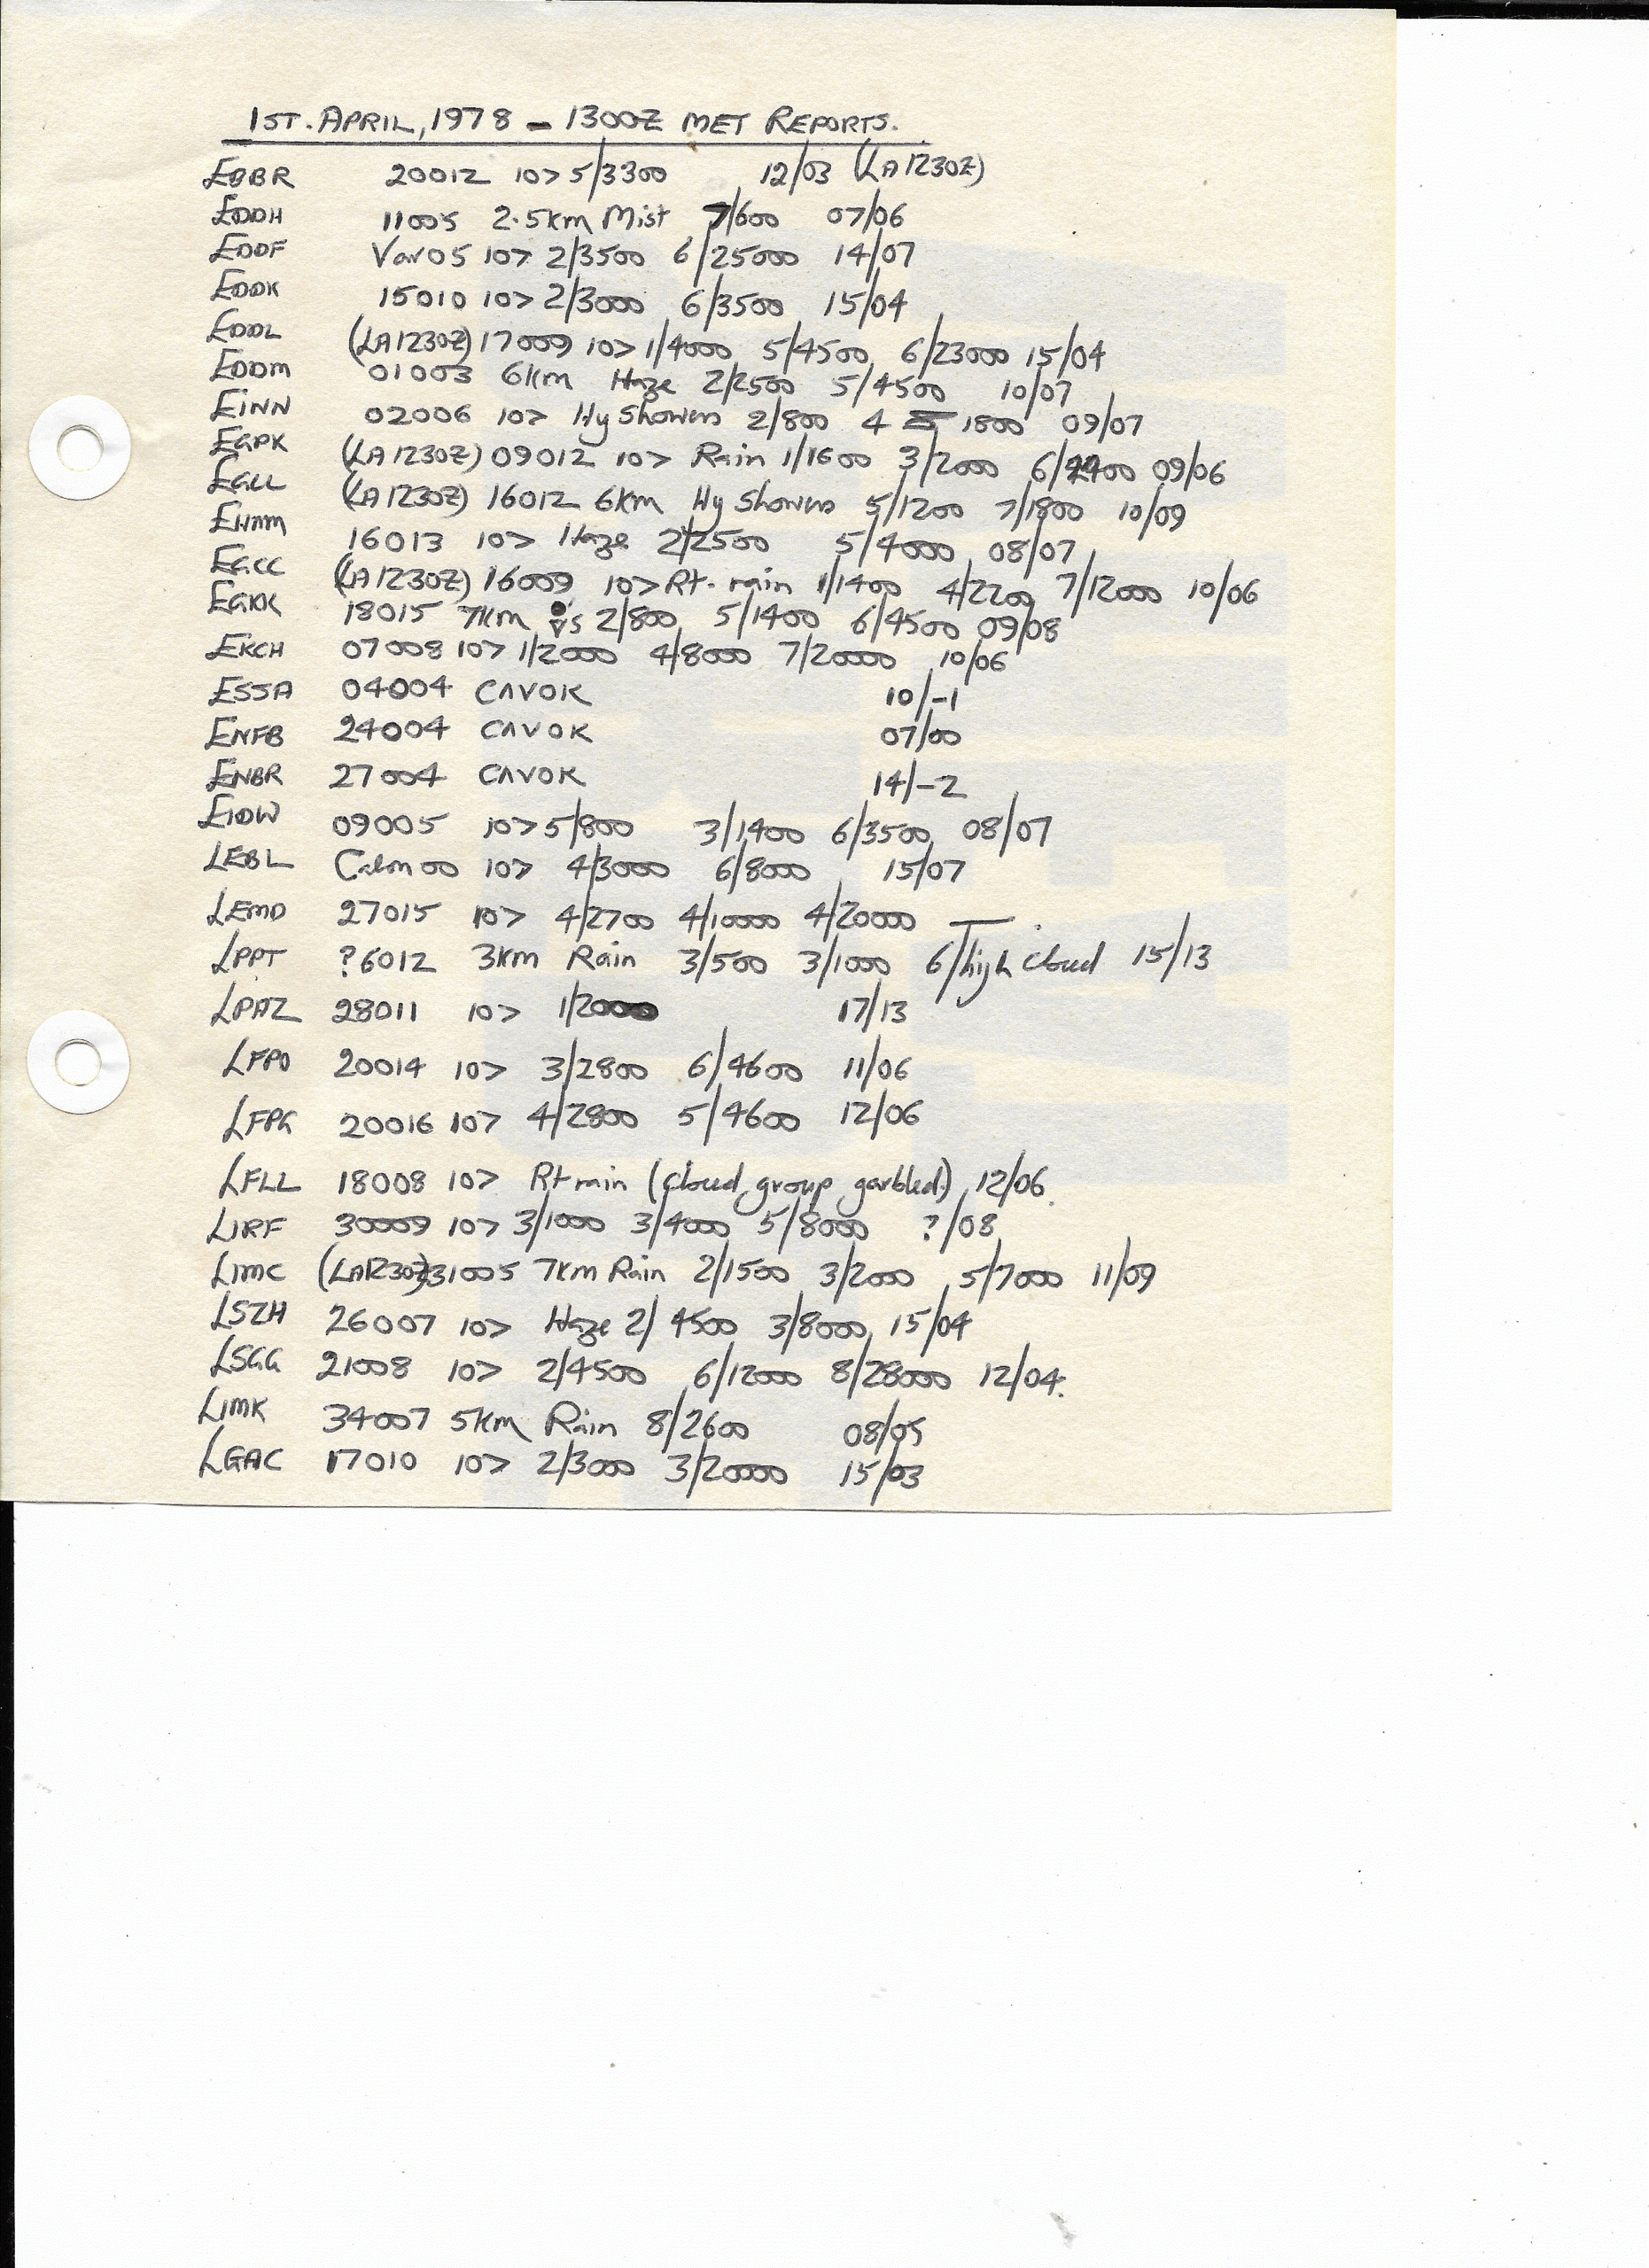 1ST. APRIL, 1978 - 1300Z MET REPORTS.
EBBR 20012 10> 5/3300 12/03 (LA1230Z)
EDDH 11005 2.5km Mist 7/600 07/06
EDDF Var05 10> 2/3500 6/25000 14/07
EDDK 15010 10> 2/3000 6/3500 15/04
EDDL (LA1230Z) 17009 10> 1/4000 5/4500 6/23000 15/04
EDDM 01003 6km Haze 2/2500 5/4500 10/07
EINN 02006 10> Hy Showers 2/800 4 1800 09/07
EGPK (LA1230Z) 09012 10> Rain 1/1600 3/2000 09/06
EGLL (LA1230Z) 16012 6km Hy Showers 5/1200 7/1800 10/09
16013 10> Haze 2/2500 5/4000 08/07
EGCC (LA1230Z) 16009 10> Rt. rain 1/1400 4/2200 7/12000 10/06
EGKK 18015 7km 2/800 5/1400 6/4500 09/08
EKCH 07008 10> 1/2000 4/8000 7/20000 10/06
ESSA 04004 CAVOK 10/-1
ENFB 24004 CAVOK 07/00
ENBR 27004 CAVOK 14/-2
EIDW 09005 10> 5/800 3/1400 6/3500 08/07
LEBL Calm 00 10> 4/3000 6/8000 15/07
LEMD 27015 10> 4/2700 4/10000 4/20000 —
LPPT ?6012 3km Rain 3/500 3/1000 6/high cloud 15/13
LPAZ 28011 10> 1/2000 17/13
LFPO 20014 10> 3/2800 6/4600 11/06
LFPG 20016 10> 4/2800 5/4600 12/06
LFLL 18008 10> Rt rain (cloud group garbled) 12/06
LIRF 30009 10> 3/1000 3/4000 5/8000 ?/08
LIMC (LA1230Z) 31005 7km Rain 2/1500 3/2000 5/7000 11/09
LSZH 26007 10> Haze 2/4500 3/8000 15/04
LSGG 21008 10> 2/4500 6/12000 8/28000 12/04.
LIMK 34007 5km Rain 8/2600 08/05
LGAC 17010 10> 2/3000 3/20000 15/03